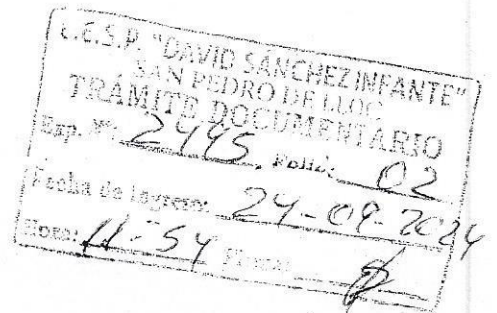 I.E.S.P. "DAVID SÁNCHEZ INFANTE"
SAN PEDRO DE LLOC
TRÁMITE DOCUMENTARIO
Exp. N°: 2495, Folio: 02
Fecha de Ingreso: 24-09-2024
Hora: 11-54 Firma: